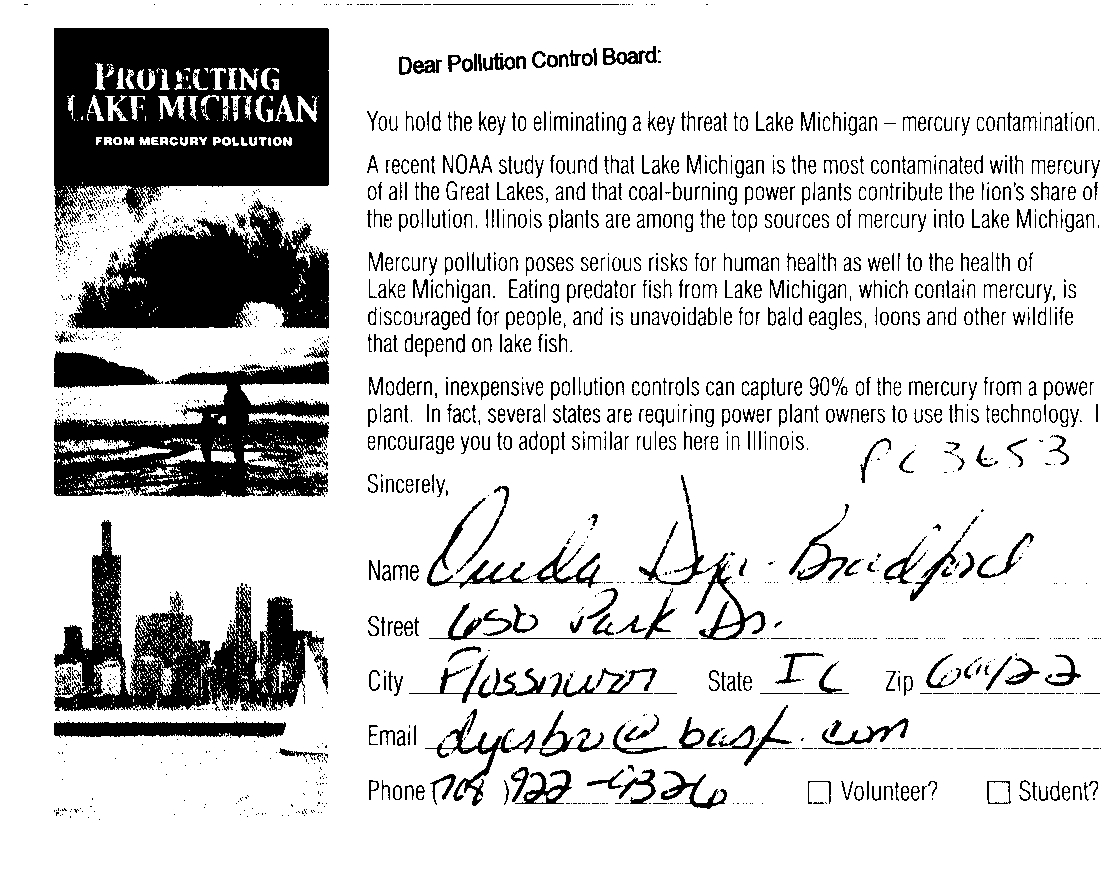 PROTECTING
LAKE MICHIGAN
FROM MERCURY POLLUTION
Dear Pollution Control Board:
You hold the key to eliminating a key threat to Lake Michigan – mercury contamination.
A recent NOAA study found that Lake Michigan is the most contaminated with mercury
of all the Great Lakes, and that coal-burning power plants contribute the lion's share of
the pollution. Illinois plants are among the top sources of mercury into Lake Michigan.
Mercury pollution poses serious risks for human health as well to the health of
Lake Michigan. Eating predator fish from Lake Michigan, which contain mercury, is
discouraged for people, and is unavoidable for bald eagles, loons and other wildlife
that depend on lake fish.
Modern, inexpensive pollution controls can capture 90% of the mercury from a power
plant. In fact, several states are requiring power plant owners to use this technology. I
encourage you to adopt similar rules here in Illinois.
PC 3653
Sincerely,
Name Bradford
Street 650 Park Dr.
City Flossmoor State IL Zip 60422
Email @basf.com
Phone (708) 922-4326 Volunteer? Student?